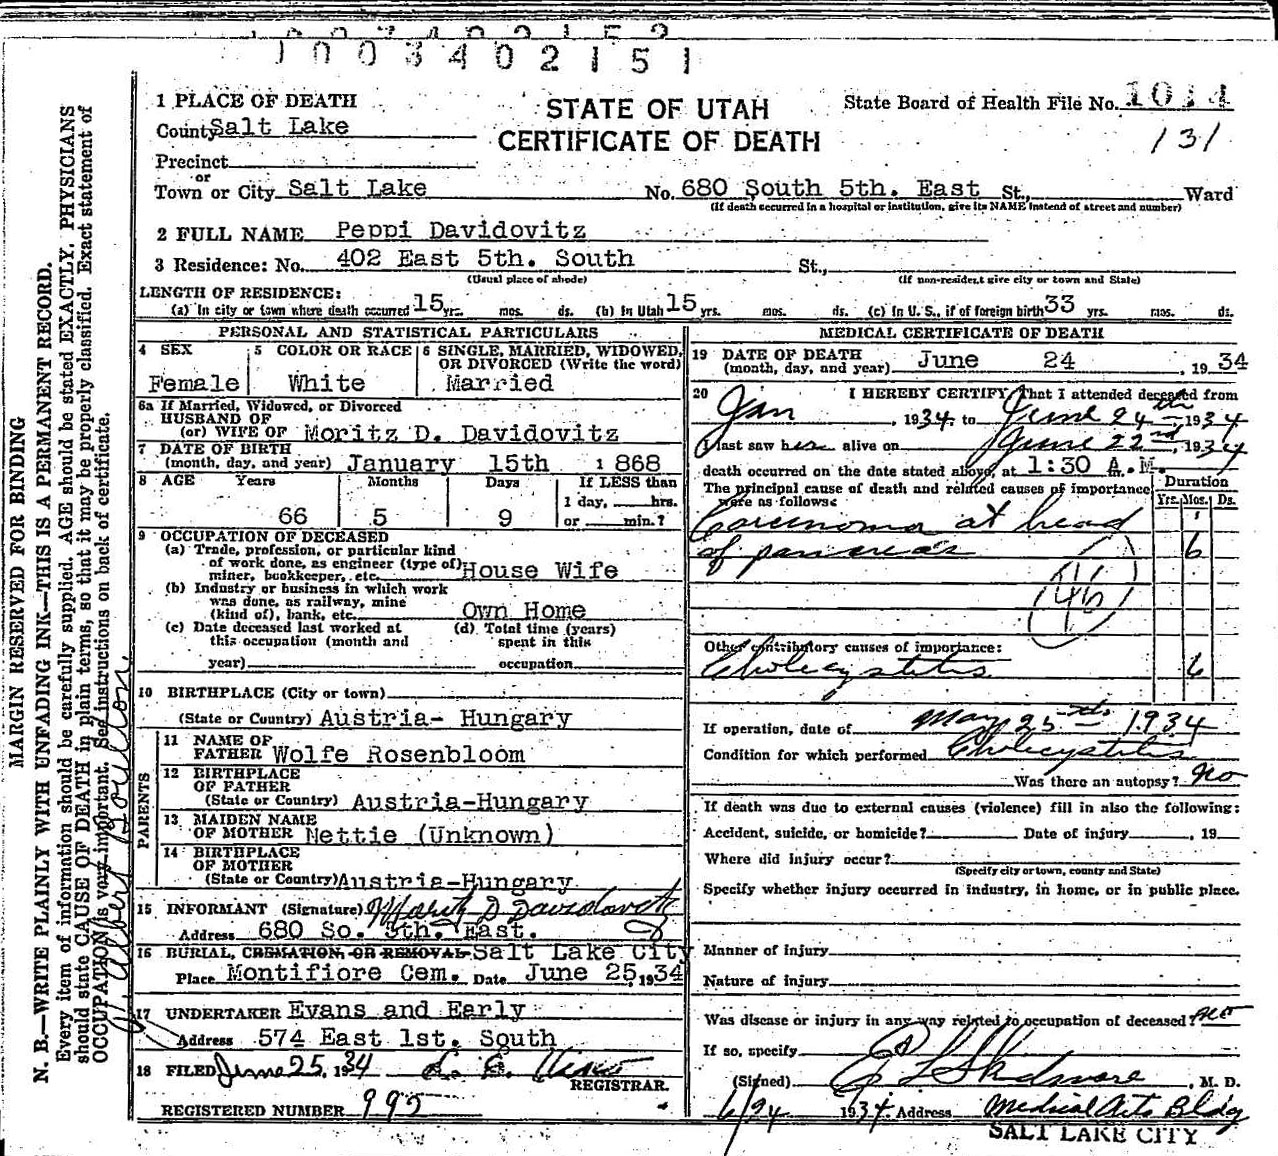 1003402151
MARGIN RESERVED FOR BINDING
N. B.—WRITE PLAINLY WITH UNFADING INK—THIS IS A PERMANENT RECORD.
Every item of information should be carefully supplied. AGE should be stated EXACTLY. PHYSICIANS
should state CAUSE OF DEATH in plain terms, so that it may be properly classified. Exact statement of
OCCUPATION is very important. See instructions on back of certificate.
STATE OF UTAH
CERTIFICATE OF DEATH
State Board of Health File No. 1014
131
1 PLACE OF DEATH
County Salt Lake
Precinct
or
Town or City Salt Lake No. 680 South 5th. East St., Ward
(If death occurred in a hospital or institution, give its NAME instead of street and number)
2 FULL NAME Peppi Davidovitz
3 Residence: No. 402 East 5th. South St.,
(Usual place of abode) (If non-resident give city or town and State)
LENGTH OF RESIDENCE:
(a) In city or town where death occurred 15 yrs. mos. ds. (b) In Utah 15 yrs. mos. ds. (c) In U. S., if of foreign birth 33 yrs. mos. ds.
PERSONAL AND STATISTICAL PARTICULARS
4 SEX Female
5 COLOR OR RACE White
6 SINGLE, MARRIED, WIDOWED, OR DIVORCED (Write the word) Married
6a If Married, Widowed, or Divorced
HUSBAND OF
(or) WIFE OF Moritz D. Davidovitz
7 DATE OF BIRTH
(month, day, and year) January 15th 1868
8 AGE Years Months Days If LESS than
1 day, hrs.
66 5 9 or min.?
9 OCCUPATION OF DECEASED
(a) Trade, profession, or particular kind
of work done, as engineer (type of)
miner, bookkeeper, etc. House Wife
(b) Industry or business in which work
was done, as railway, mine
(kind of), bank, etc. Own Home
(c) Date deceased last worked at
this occupation (month and
year)
(d) Total time (years)
spent in this
occupation
10 BIRTHPLACE (City or town)
(State or Country) Austria-Hungary
PARENTS
11 NAME OF
FATHER Wolfe Rosenbloom
12 BIRTHPLACE
OF FATHER
(State or Country) Austria-Hungary
13 MAIDEN NAME
OF MOTHER Nettie (Unknown)
14 BIRTHPLACE
OF MOTHER
(State or Country) Austria-Hungary
15 INFORMANT (Signature) Moritz D Davidovitz
Address 680 So. 5th. East.
16 BURIAL, CREMATION, OR REMOVAL Salt Lake City
Place Montifiore Cem. Date June 25, 1934
17 UNDERTAKER Evans and Early
Address 574 East 1st. South
18 FILED June 25, 1934
REGISTRAR.
REGISTERED NUMBER 995
MEDICAL CERTIFICATE OF DEATH
19 DATE OF DEATH
(month, day, and year) June 24, 1934
20 I HEREBY CERTIFY, That I attended deceased from
Jan, 1934, to June 24th 1934
I last saw her alive on June 22nd, 1934
death occurred on the date stated above, at 1:30 A. M.
The principal cause of death and related causes of importance
were as follows:
Duration
Yrs. Mos. Ds.
Carcinoma at head
of pancreas 6
(46)
Other contributory causes of importance:
Cholecystitis 6
If operation, date of May 25th 1934
Condition for which performed Cholecystitis
Was there an autopsy? No
If death was due to external causes (violence) fill in also the following:
Accident, suicide, or homicide? Date of injury , 19
Where did injury occur?
(Specify city or town, county and State)
Specify whether injury occurred in industry, in home, or in public place.
Manner of injury
Nature of injury
Was disease or injury in any way related to occupation of deceased? no
If so, specify
(Signed) Skidmore, M. D.
6/24 1934 Address Medical Arts Bldg
SALT LAKE CITY